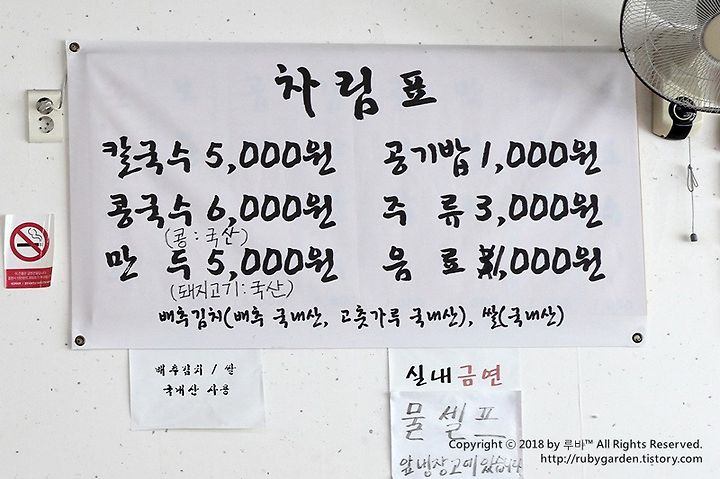 차림표
칼국수 5,000원 공기밥 1,000원
콩국수 6,000원 주 류 3,000원
(콩:국산)
만 두 5,000원 음 료 1,000원
(돼지고기:국산)
배추김치(배추 국내산, 고춧가루 국내산), 쌀(국내산)
배추김치 / 쌀
국내산 사용
실내금연
물 셀프
앞냉장고에있습니다
Copyright © 2018 by 루바™ All Rights Reserved.
http://rubygarden.tistory.com